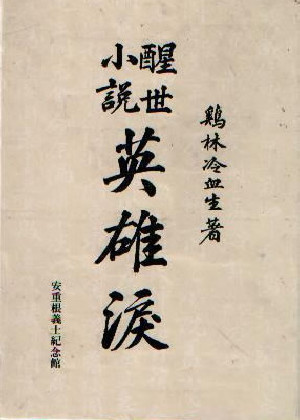 鷄林冷血生著
醒世
小説
英雄淚
安重根義士紀念館